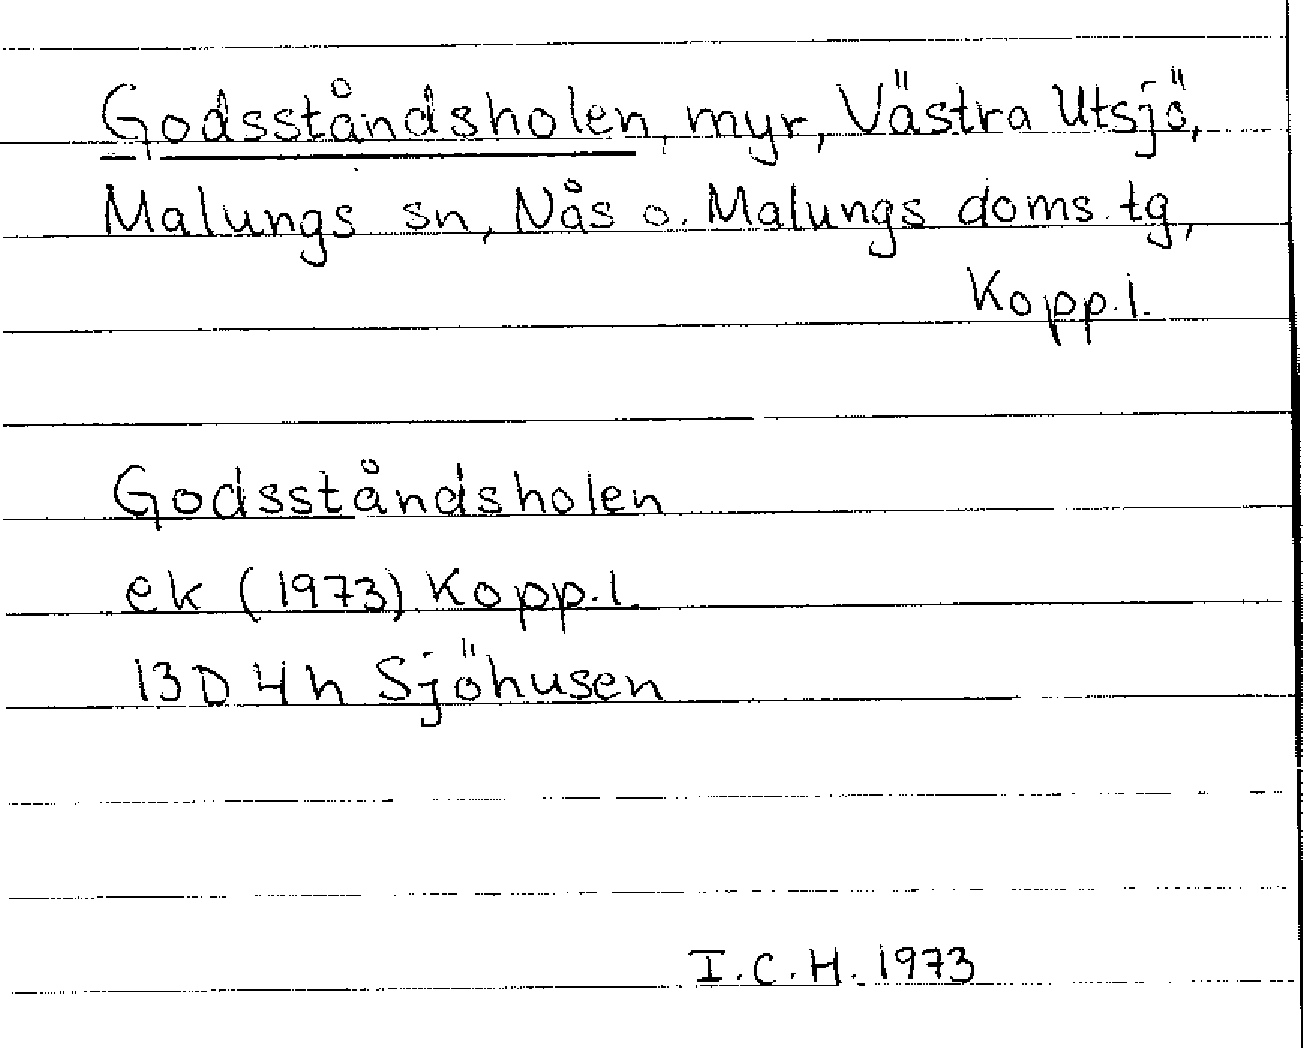 Godsståndsholen, myr, Västra Utsjö,
Malungs sn, Nås o. Malungs doms.tg,
Kopp.l.
Godsståndsholen
ek (1973) Kopp.l.
13D4h Sjöhusen
I.C.H. 1973